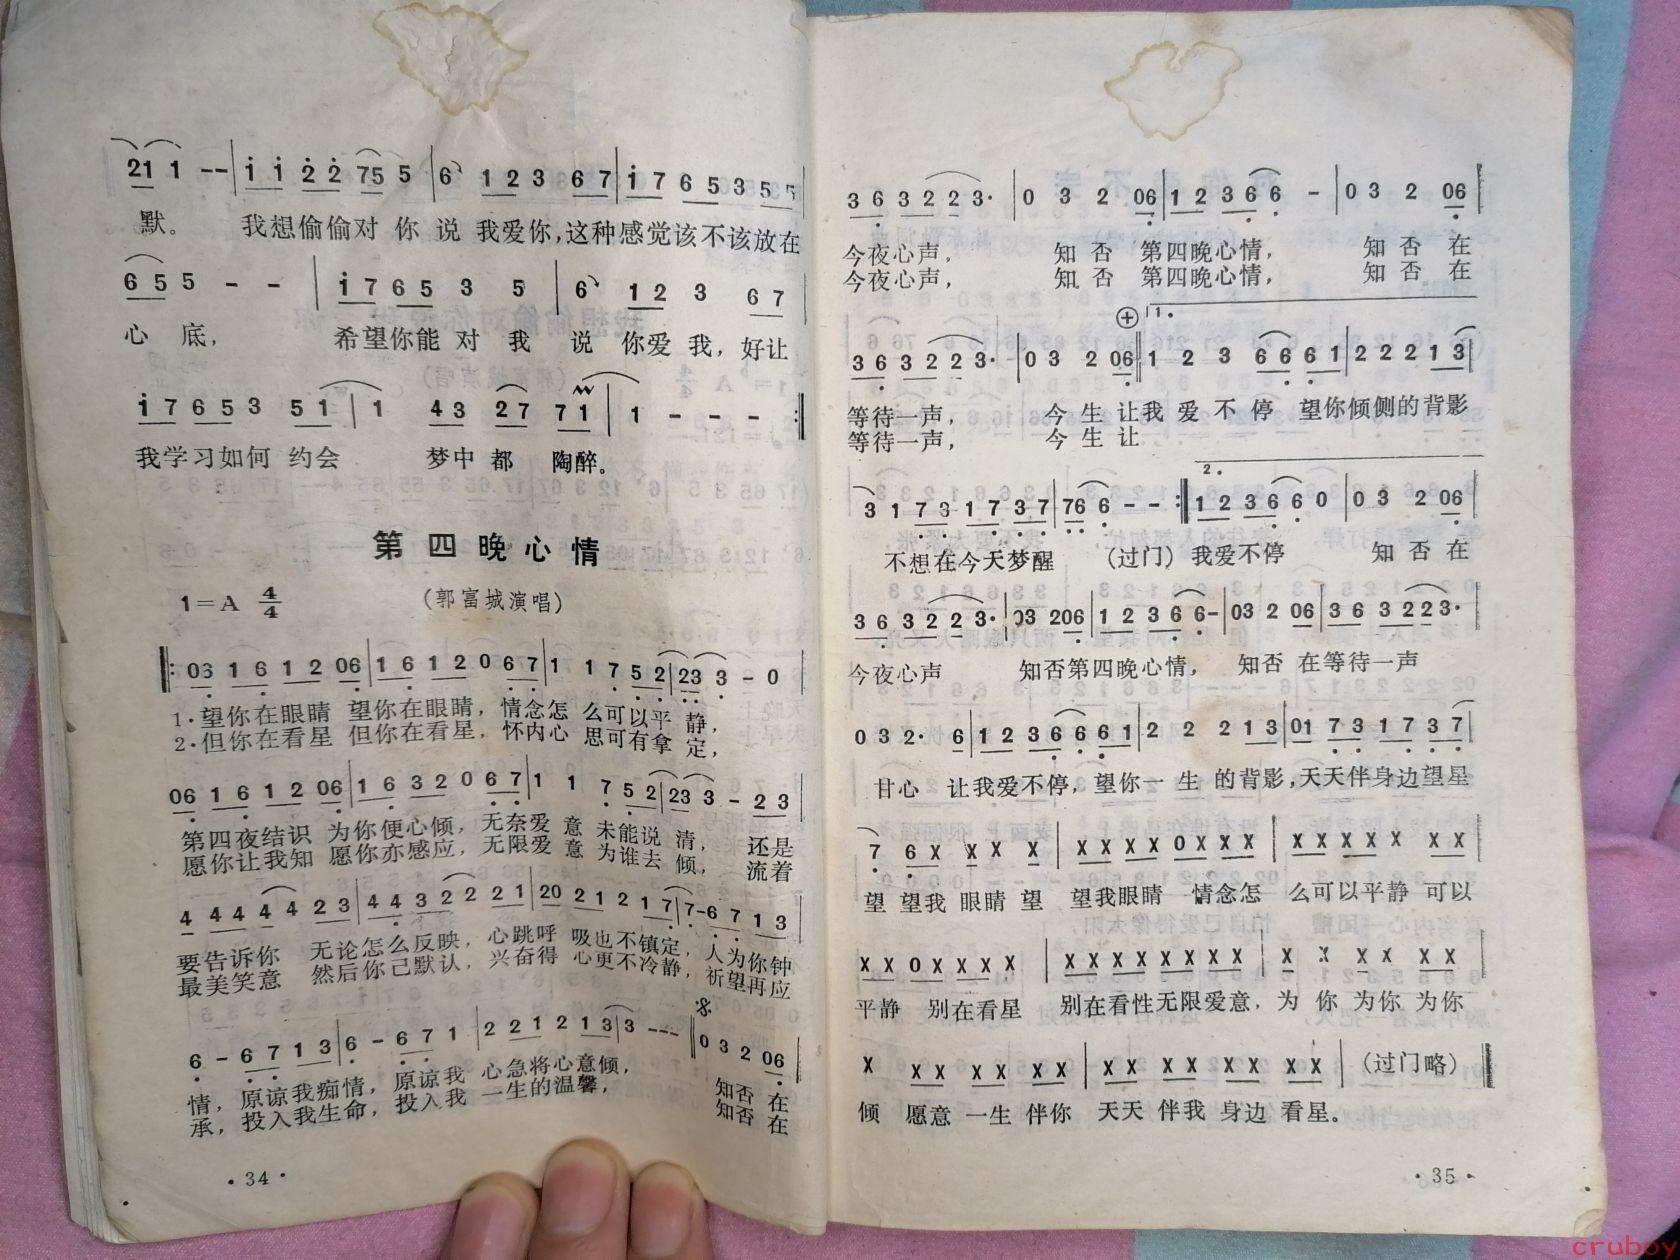 21 1 -- i i 2 2 75 5 6 1 2 3 6 7 i 7 6 5 3 5 5
默。 我想偷偷对 你 说 我爱你,这种感觉该不该放在
6 5 5 - - i 7 6 5 3 5 6 1 2 3 6 7
心 底, 希望你能 对 我 说 你爱 我,好让
i 7 6 5 3 5 1 1 4 3 2 7 7 1 1 - - -
我学习如何 约会 梦中 都 陶醉。
第四晚心情
1=A 4/4 (郭富城演唱)
03 1 6 1 2 06 1 6 1 2 0 6 7 1 1 7 5 2 23 3 - 0
1·望你在眼睛 望你在眼睛,情念怎 么可以平 静,
2·但你在看星 但你在看星,怀内心 思可有拿 定,
06 1 6 1 2 06 1 6 3 2 0 6 7 1 1 7 5 2 23 3 - 2 3
第四夜结识 为你便心倾,无奈爱 意 未能说 清, 还是
愿你让我知 愿你亦感应,无限爱 意 为谁去 倾, 流着
4 4 4 4 4 2 3 4 4 3 2 2 2 1 20 2 1 2 1 7 7 - 6 7 1 3
要告诉你 无论怎么反映,心跳呼 吸也不镇定,人为你钟
最美笑意 然后你己默认,兴奋得 心更不冷静,祈望再应
6 - 6 7 1 3 6 - 6 7 1 2 2 1 2 1 3 3 --- 0 3 2 06
情,原谅我痴情,原谅我 心急将心意倾, 知否 在
承,投入我生命,投入我 一生的温馨, 知否 在
·34·
3 6 3 2 2 3· 0 3 2 06 1 2 3 6 6 - 0 3 2 06
今夜心声, 知 否 第四晚心情, 知 否 在
今夜心声, 知 否 第四晚心情, 知 否 在
1.
3 6 3 2 2 3· 0 3 2 06 1 2 3 6 6 6 1 2 2 2 1 3
等待一声, 今 生 让我 爱 不 停 望你倾侧的背影
等待一声, 今 生 让
2.
3 1 7 3 1 7 3 7 76 6 - - 1 2 3 6 6 0 0 3 2 06
不想在今天梦醒 (过门) 我爱不停 知 否 在
3 6 3 2 2 3· 03 206 1 2 3 6 6- 03 2 06 3 6 3 2 2 3·
今夜心声 知否第四晚心情, 知否 在等待一声
0 3 2· 6 1 2 3 6 6 6 1 2 2 2 1 3 01 7 3 1 7 3 7
甘心 让我爱不停,望你一 生 的背影,天天伴身边望星
7 6 X X X X X X X X 0 X X X X X X X X X X
望 望我 眼睛 望 望我眼睛 情念怎 么可以平静 可以
X X 0 X X X X X X X X X X X X X X X X X X X
平静 别在看星 别在看性无限爱意,为 你 为你 为你
X X X X X X X X X X X X X X X (过门略)
倾 愿意 一生 伴你 天天 伴我 身边 看星。
·35·
cruboy